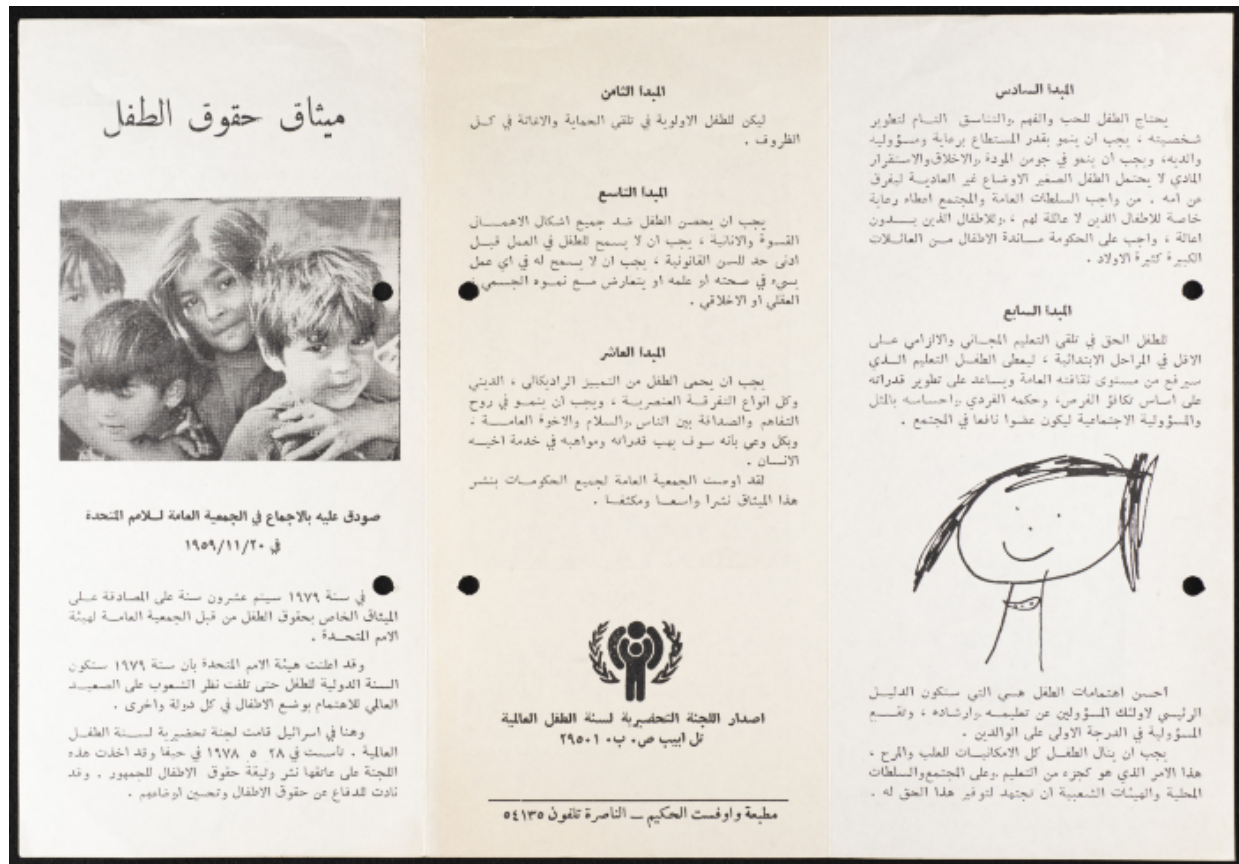 المبدا السادس
يحتاج الطفل للحب والفهم ،والتناسق التام لتطوير
شخصيته ، يجب ان ينمو بقدر المستطاع برعاية ومسؤولية
والديه، ويجب ان ينمو في جومن المودة ،والاخلاق،والاستقرار
المادي لا يحتمل الطفل الصغير الاوضاع غير العادية ليفرق
عن امه . من واجب السلطات العامة والمجتمع اعطاء رعاية
خاصة للاطفال الذين لا عائلة لهم ، ،وللاطفال الذين بدون
اعالة ، واجب على الحكومة مساندة الاطفال من العائلات
الكبيرة كثيرة الاولاد .
المبدا السابع
للطفل الحق في تلقي التعليم المجاني والالزامي على
الاقل في المراحل الابتدائية ، ليعطى الطفل التعليم الذي
سيرفع من مستوى ثقافته العامة ويساعد على تطوير قدراته
على اساس تكافؤ الفرص، وحكمه الفردي ،واحساسه بالمثل
والمسؤولية الاجتماعية ليكون عضوا نافعا في المجتمع .
احسن اهتمامات الطفل هي التي ستكون الدليل
الرئيسي لاولئك المسؤولين عن تعليمه ،وارشاده ، وتقع
المسؤولية في الدرجة الاولى على الوالدين .
يجب ان ينال الطفل كل الامكانيات للعب والمرح ،
هذا الامر الذي هو كجزء من التعليم ،وعلى المجتمع والسلطات
المحلية والهيئات الشعبية ان تجتهد لتوفير هذا الحق له .
المبدا الثامن
ليكن للطفل الاولوية في تلقي الحماية والاغاثة في كل
الظروف .
المبدا التاسع
يجب ان يحصن الطفل ضد جميع اشكال الاهمال
القسوة والانانية ، يجب ان لا يسمح للطفل في العمل قبل
ادنى حد للسن القانونية ، يجب ان لا يسمح له في اي عمل
يسيء في صحته او علمه او يتعارض مع نموه الجسمي ،
العقلي او الاخلاقي .
المبدا العاشر
يجب ان يحمى الطفل من التمييز الراديكالي ، الديني
وكل انواع التفرقة العنصرية ، ويجب ان ينمو في روح
التفاهم والصداقة بين الناس ،والسلام والاخوة العامة ،
وبكل وعي بانه سوف يهب قدراته ومواهبه في خدمة اخيه
الانسان .
لقد اوصت الجمعية العامة لجميع الحكومات بنشر
هذا الميثاق نشرا واسعا ومكثفا .
اصدار اللجنة التحضيرية لسنة الطفل العالمية
تل ابيب ص٠ ب٠ ٢٩٥٠١
مطبعة واوفست الحكيم ــ الناصرة تلفون ٥٤١٣٥
ميثاق حقوق الطفل
صودق عليه بالاجماع في الجمعية العامة للامم المتحدة
في ١٩٥٩/١١/٢٠
في سنة ١٩٧٩ سيتم عشرون سنة على المصادقة على
الميثاق الخاص بحقوق الطفل من قبل الجمعية العامة لهيئة
الامم المتحدة .
وقد اعلنت هيئة الامم المتحدة بأن سنة ١٩٧٩ ستكون
السنة الدولية للطفل حتى تلفت نظر الشعوب على الصعيد
العالمي للاهتمام بوضع الاطفال في كل دولة واخرى .
وهنا في اسرائيل قامت لجنة تحضيرية لسنة الطفل
العالمية . تأسست في ٢٨ ٥ ١٩٧٨ في حيفا وقد اخذت هذه
اللجنة على عاتقها نشر وثيقة حقوق الاطفال للجمهور . وقد
نادت للدفاع عن حقوق الاطفال وتحسين اوضاعهم .